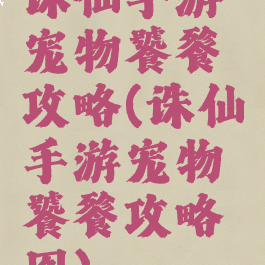 诛仙手游
宠物饕餮
攻略(诛仙
手游宠物
饕餮攻略
图)